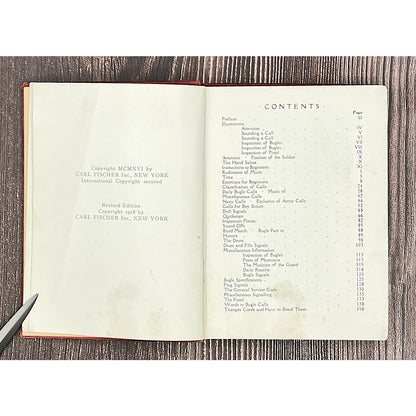 Copyright MCMXVI by
CARL FISCHER Inc., NEW YORK
International Copyright secured
Revised Edition
Copyright 1918 by
CARL FISCHER Inc., NEW YORK
· CONTENTS ·
Page
Preface III
Illustrations
Attention IV
Sounding a Call V
Sounding a Call VI
Inspection of Bugles VII
Inspection of Bugles VII
Inspection of Pistol X
Attention - Position of the Soldier X
The Hand Salute X
Instructions to Beginners
Rudiments of Music 1
Time
Exercises for Beginners
Classification of Calls
Daily Bugle Calls - Music of
Miscellaneous Calls
Navy Calls - Exclusive of Army Calls
Calls for Boy Scouts
Drill Signals
Quicksteps
Inspection Pieces
Sound Offs
Band March - Bugle Part to
Honors
The Drum 90
Drum and Fife Signals 103
Miscellaneous Information
Inspection of Bugles 115
Posts of Musicians 115
The Musician of the Guard
Daily Routine
Bugle Signals
Bugle Specifications
Flag Signals
The General Service Code
Miscellaneous Signalling
The Pistol
Words to Bugle Calls
Trumpet Cords and How to Braid Them 150